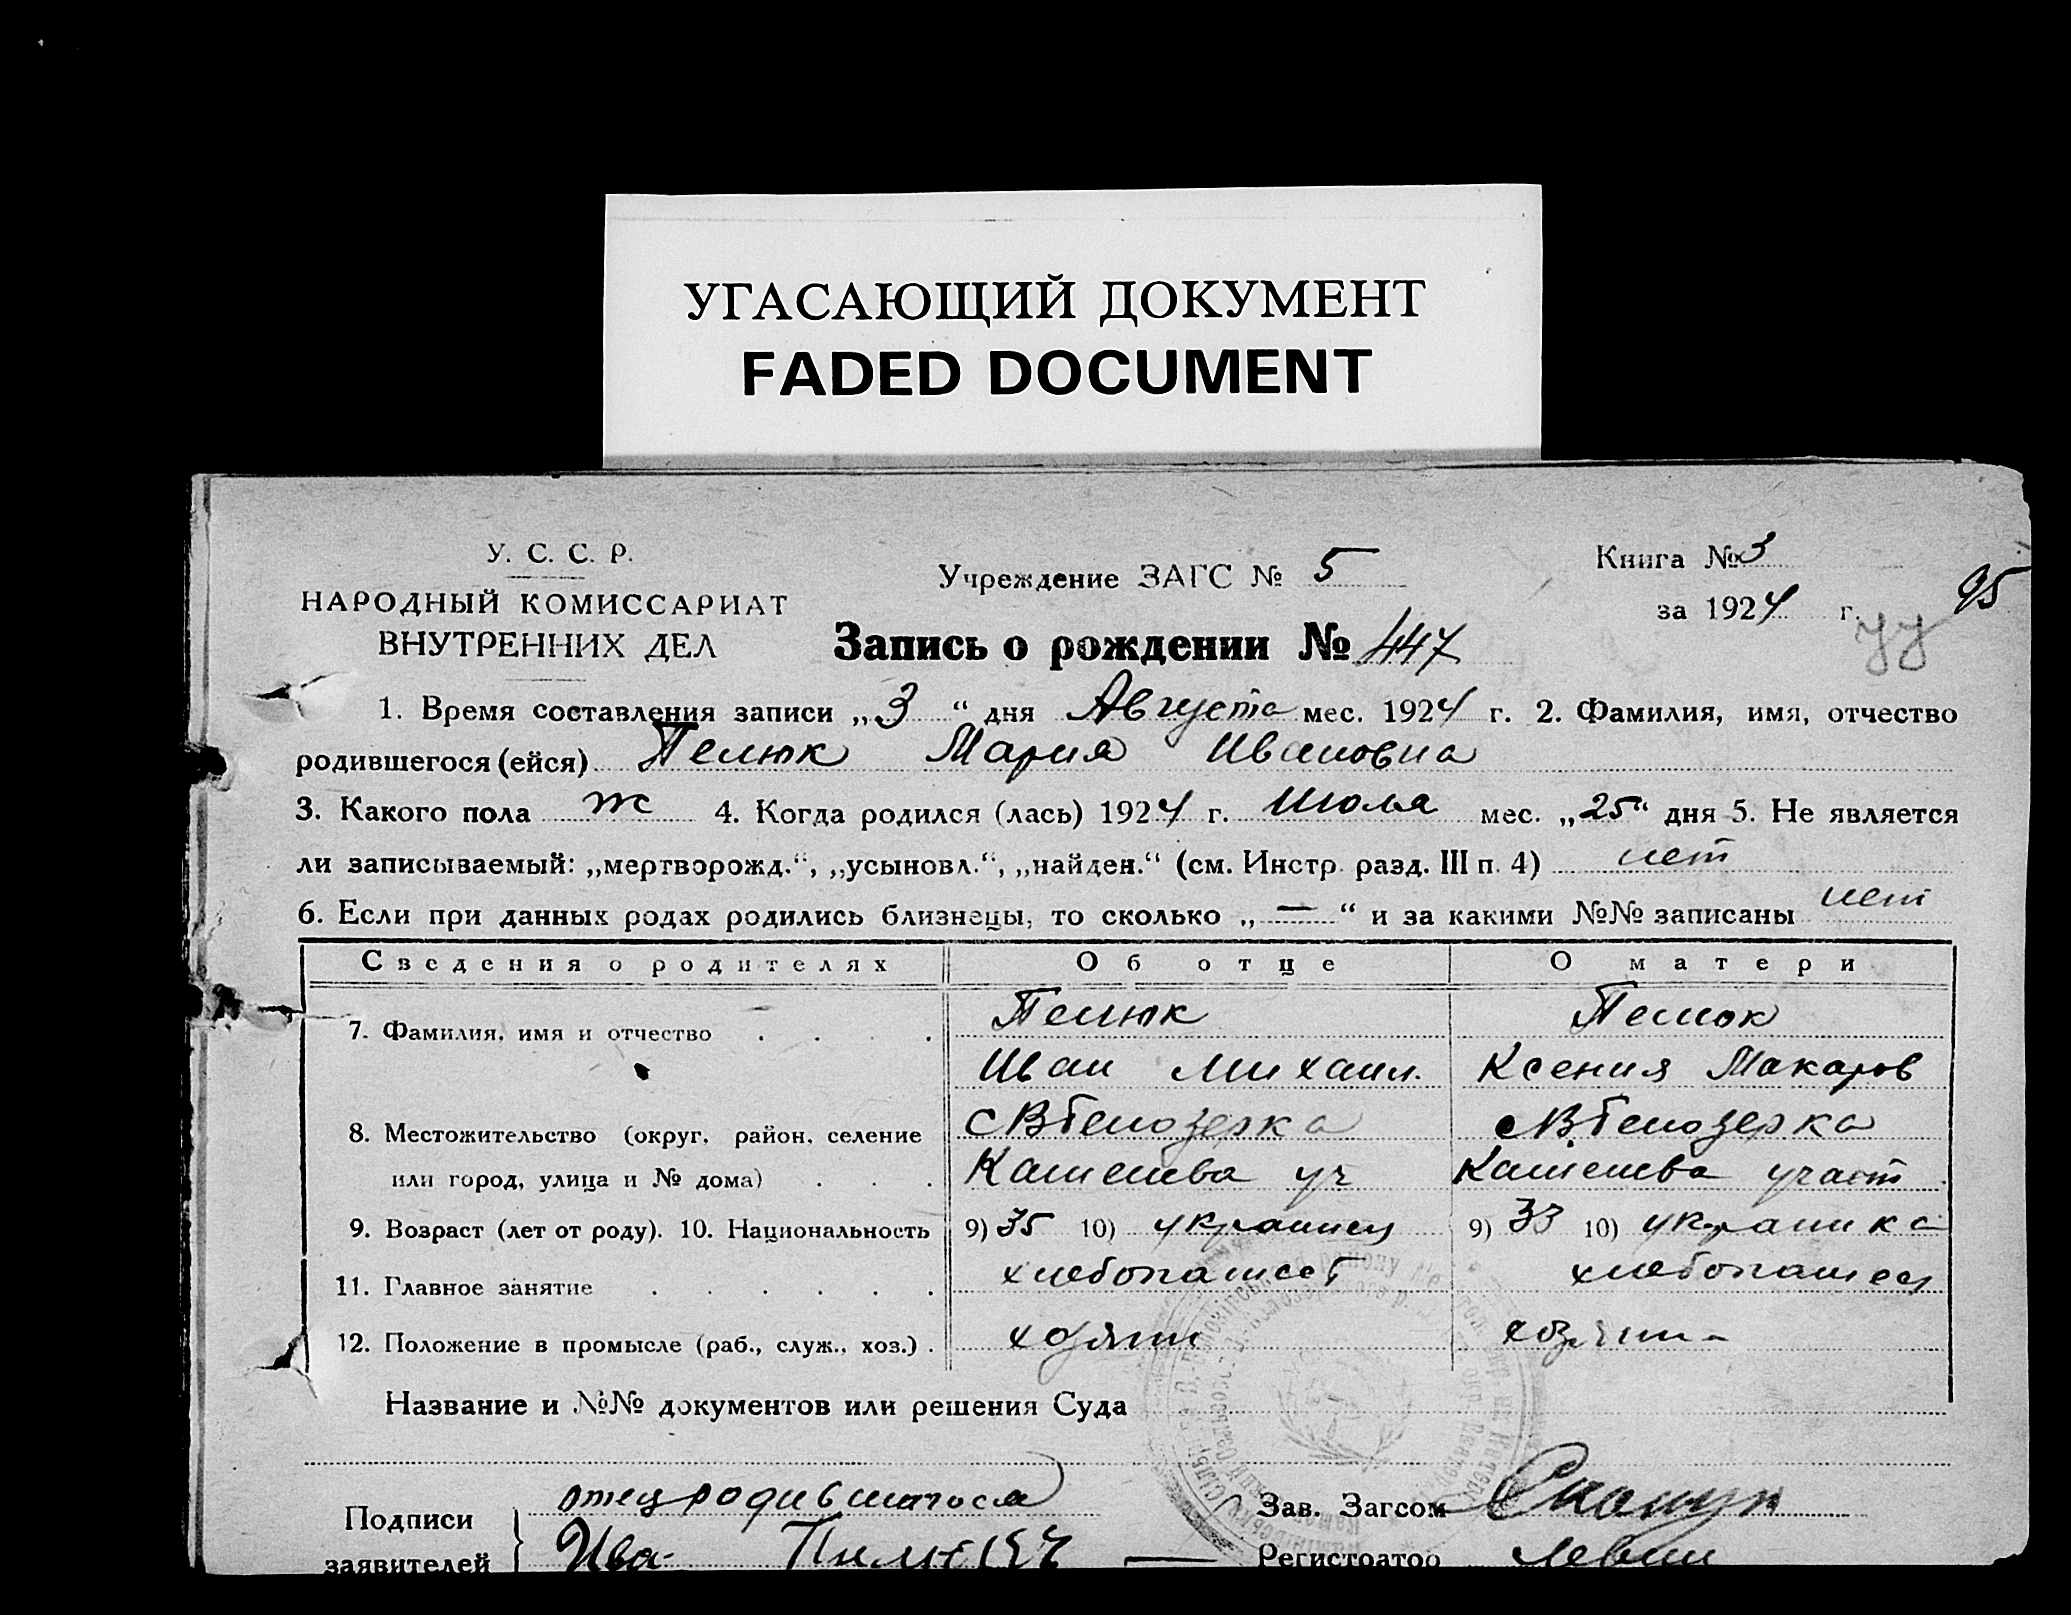 УГАСАЮЩИЙ ДОКУМЕНТ
FADED DOCUMENT
У. С. С. Р.
НАРОДНЫЙ КОМИССАРИАТ
ВНУТРЕННИХ ДЕЛ
Учреждение ЗАГС № 5
Книга № 3
за 1924 г.
95
Запись о рождении № 447
1. Время составления записи „3“ дня Августа мес. 1924 г. 2. Фамилия, имя, отчество
родившегося (ейся) Пелюк Мария Ивановна
3. Какого пола ж 4. Когда родился (лась) 1924 г. Июля мес. „25“ дня 5. Не является
ли записываемый: „мертворожд.“, „усыновл.“, „найден.“ (см. Инстр. разд. III п. 4) нет
6. Если при данных родах родились близнецы, то сколько „—“ и за какими №№ записаны нет
Сведения о родителях Об отце О матери
7. Фамилия, имя и отчество Пелюк Пелюк
Иван Михаил. Ксения Макаров
8. Местожительство (округ, район, селение с В Белозерка с В. Белозерка
или город, улица и № дома) уч участ
9. Возраст (лет от роду). 10. Национальность 9) 35 10) украинец 9) 33 10) украинка
11. Главное занятие хлебопашест хлебопашец
12. Положение в промысле (раб., служ., хоз.) хозяин
Название и №№ документов или решения Суда
Подписи отец родившагося Зав. Загсом
заявителей Ива Регистратор Левин